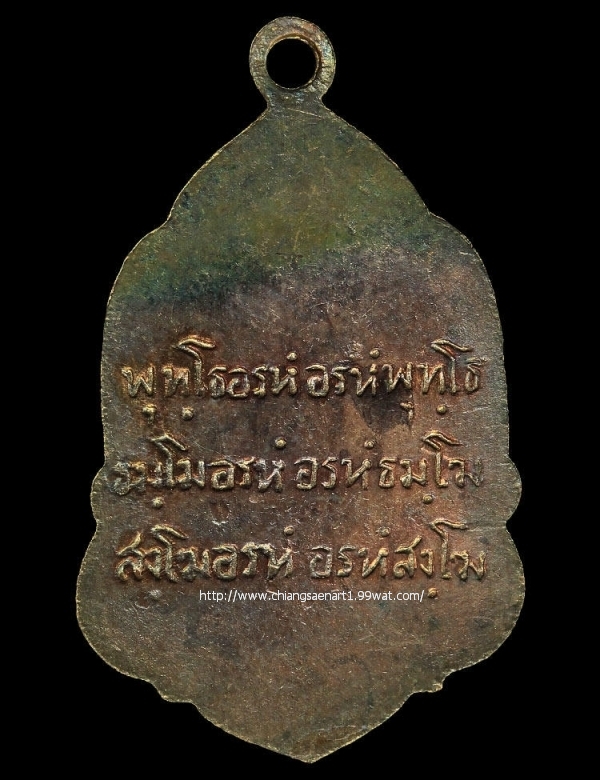 พุทฺโธอรหํ อรหํพุทฺโธ
ธมฺโมอรหํ อรหํธมฺโม
สงฺโฆอรหํ อรหํสงฺโฆ
http://www.chiangsaenart1.99wat.com